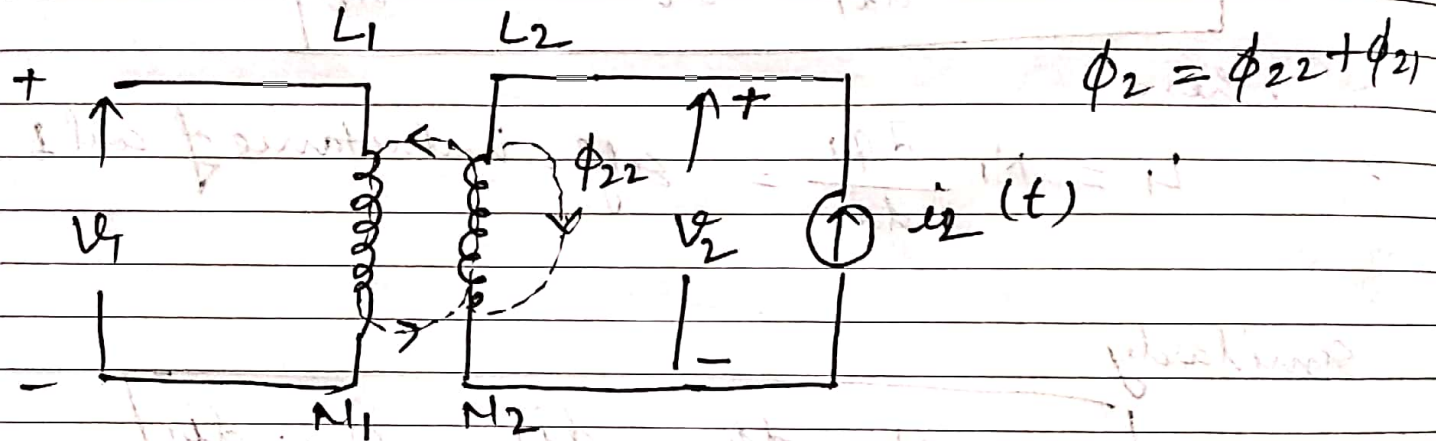 L1 L2
ϕ2 = ϕ22 + ϕ21
+
+
ϕ22
V1
V2
i2 (t)
-
-
N1 N2